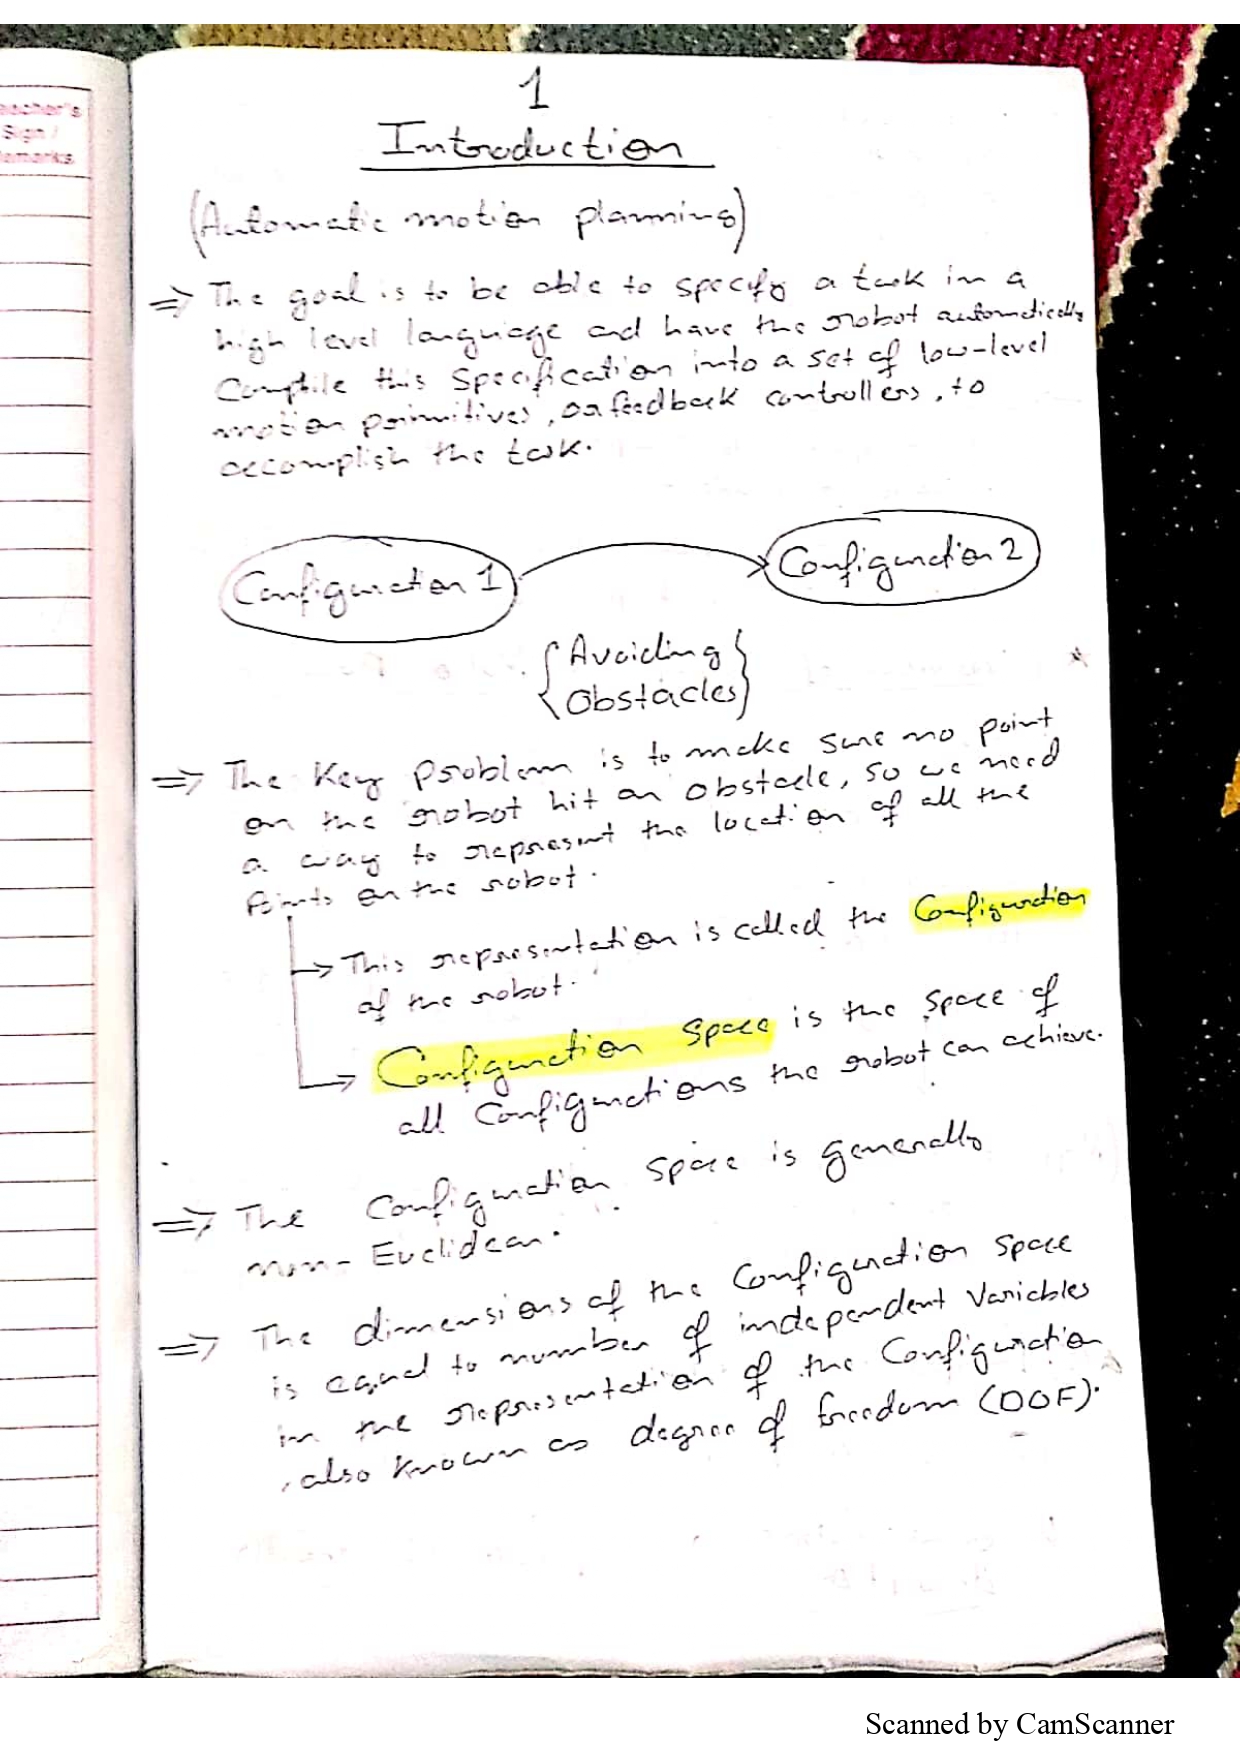 Teacher's
Sign /
Remarks
1
Introduction
(Automatic motion planning)
⇒ The goal is to be able to specify a task in a
high level language and have the robot automatically
Compile this specification into a set of low-level
motion primitives, or feedback controllers, to
accomplish the task.
Configuration 1
Configuration 2
{Avoiding
Obstacles}
⇒ The Key problem is to make sure no point
on the robot hit an obstacle, so we need
a way to represent the location of all the
Points on the robot.
→ This representation is called the Configuration
of the robot.
→ Configuration Space is the space of
all Configurations the robot can achieve.
⇒ The Configuration Space is generally
non-Euclidean.
⇒ The dimensions of the Configuration Space
is equal to number of independent Variables
in the representation of the Configuration
, also known as degree of freedom (DOF).
Scanned by CamScanner